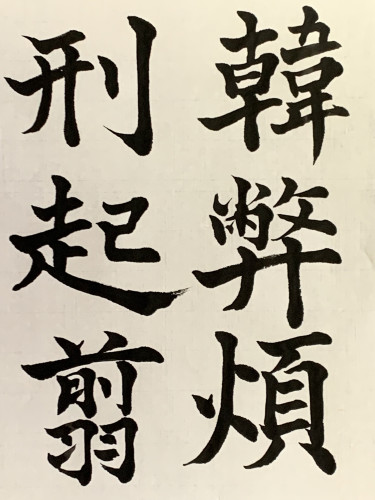 韓弊煩
刑起翦